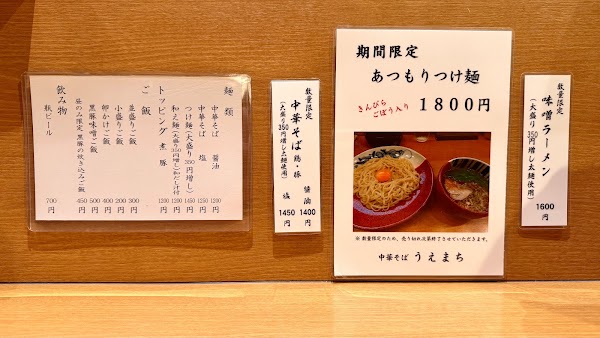 麺類
中華そば 醤油 1200円
中華そば 塩 1250円
つけ麺(大盛り350円増し) 1450円
和え麺(大盛り350円増し)和だし汁付 1200円
トッピング 煮豚 1200円
ご飯
並盛りご飯 300円
小盛りご飯 200円
卵かけご飯 400円
黒豚味噌ご飯 500円
昼のみ限定 黒豚の炊き込みご飯 450円
飲み物
瓶ビール 700円
数量限定
中華そば 鶏・豚
(大盛り350円増し太麺使用)
醤油 1400円
塩 1450円
期間限定
あつもりつけ麺
きんぴら
ごぼう入り
1800円
※数量限定のため、売り切れ次第終了させていただきます。
中華そば うえまち
数量限定
味噌ラーメン
(大盛り350円増し太麺使用)
1600円